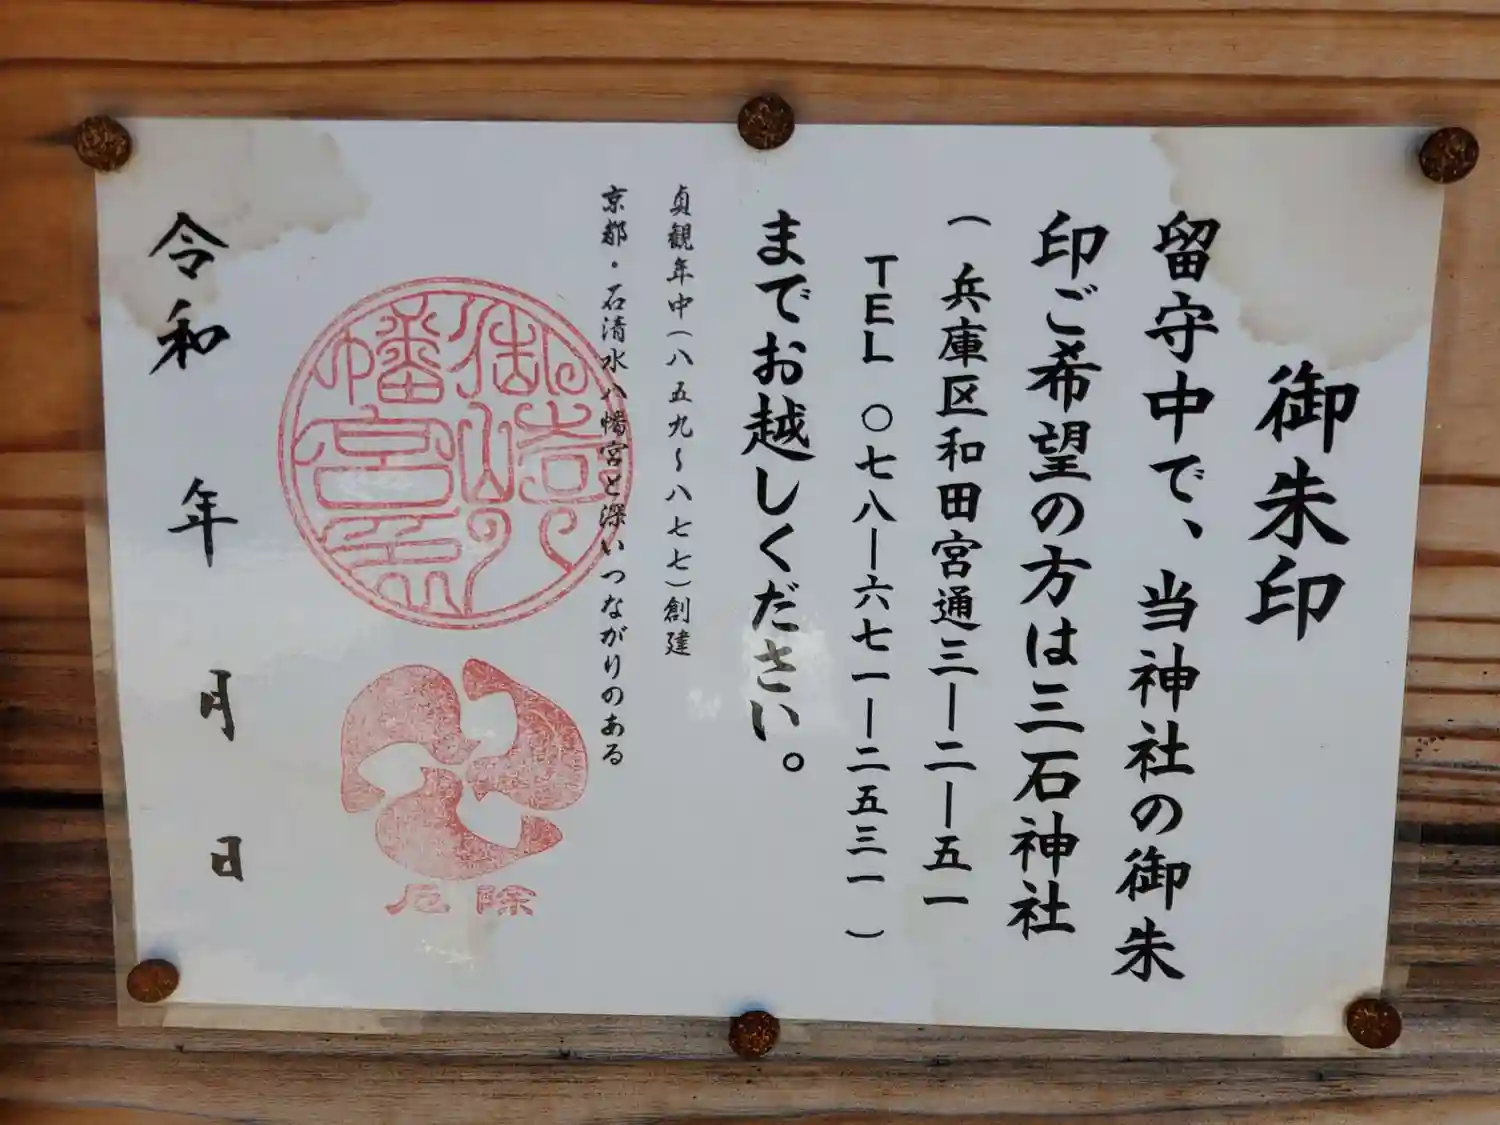 御朱印
留守中で、当神社の御朱
印ご希望の方は三石神社
(兵庫区和田宮通三ー二ー五一
TEL ○七八ー六七一ー二五三一)
までお越しください。
貞観年中(八五九～八七七)創建
京都・石清水八幡宮と深いつながりのある
御崎
八幡
宮印
厄除
令和 年 月 日